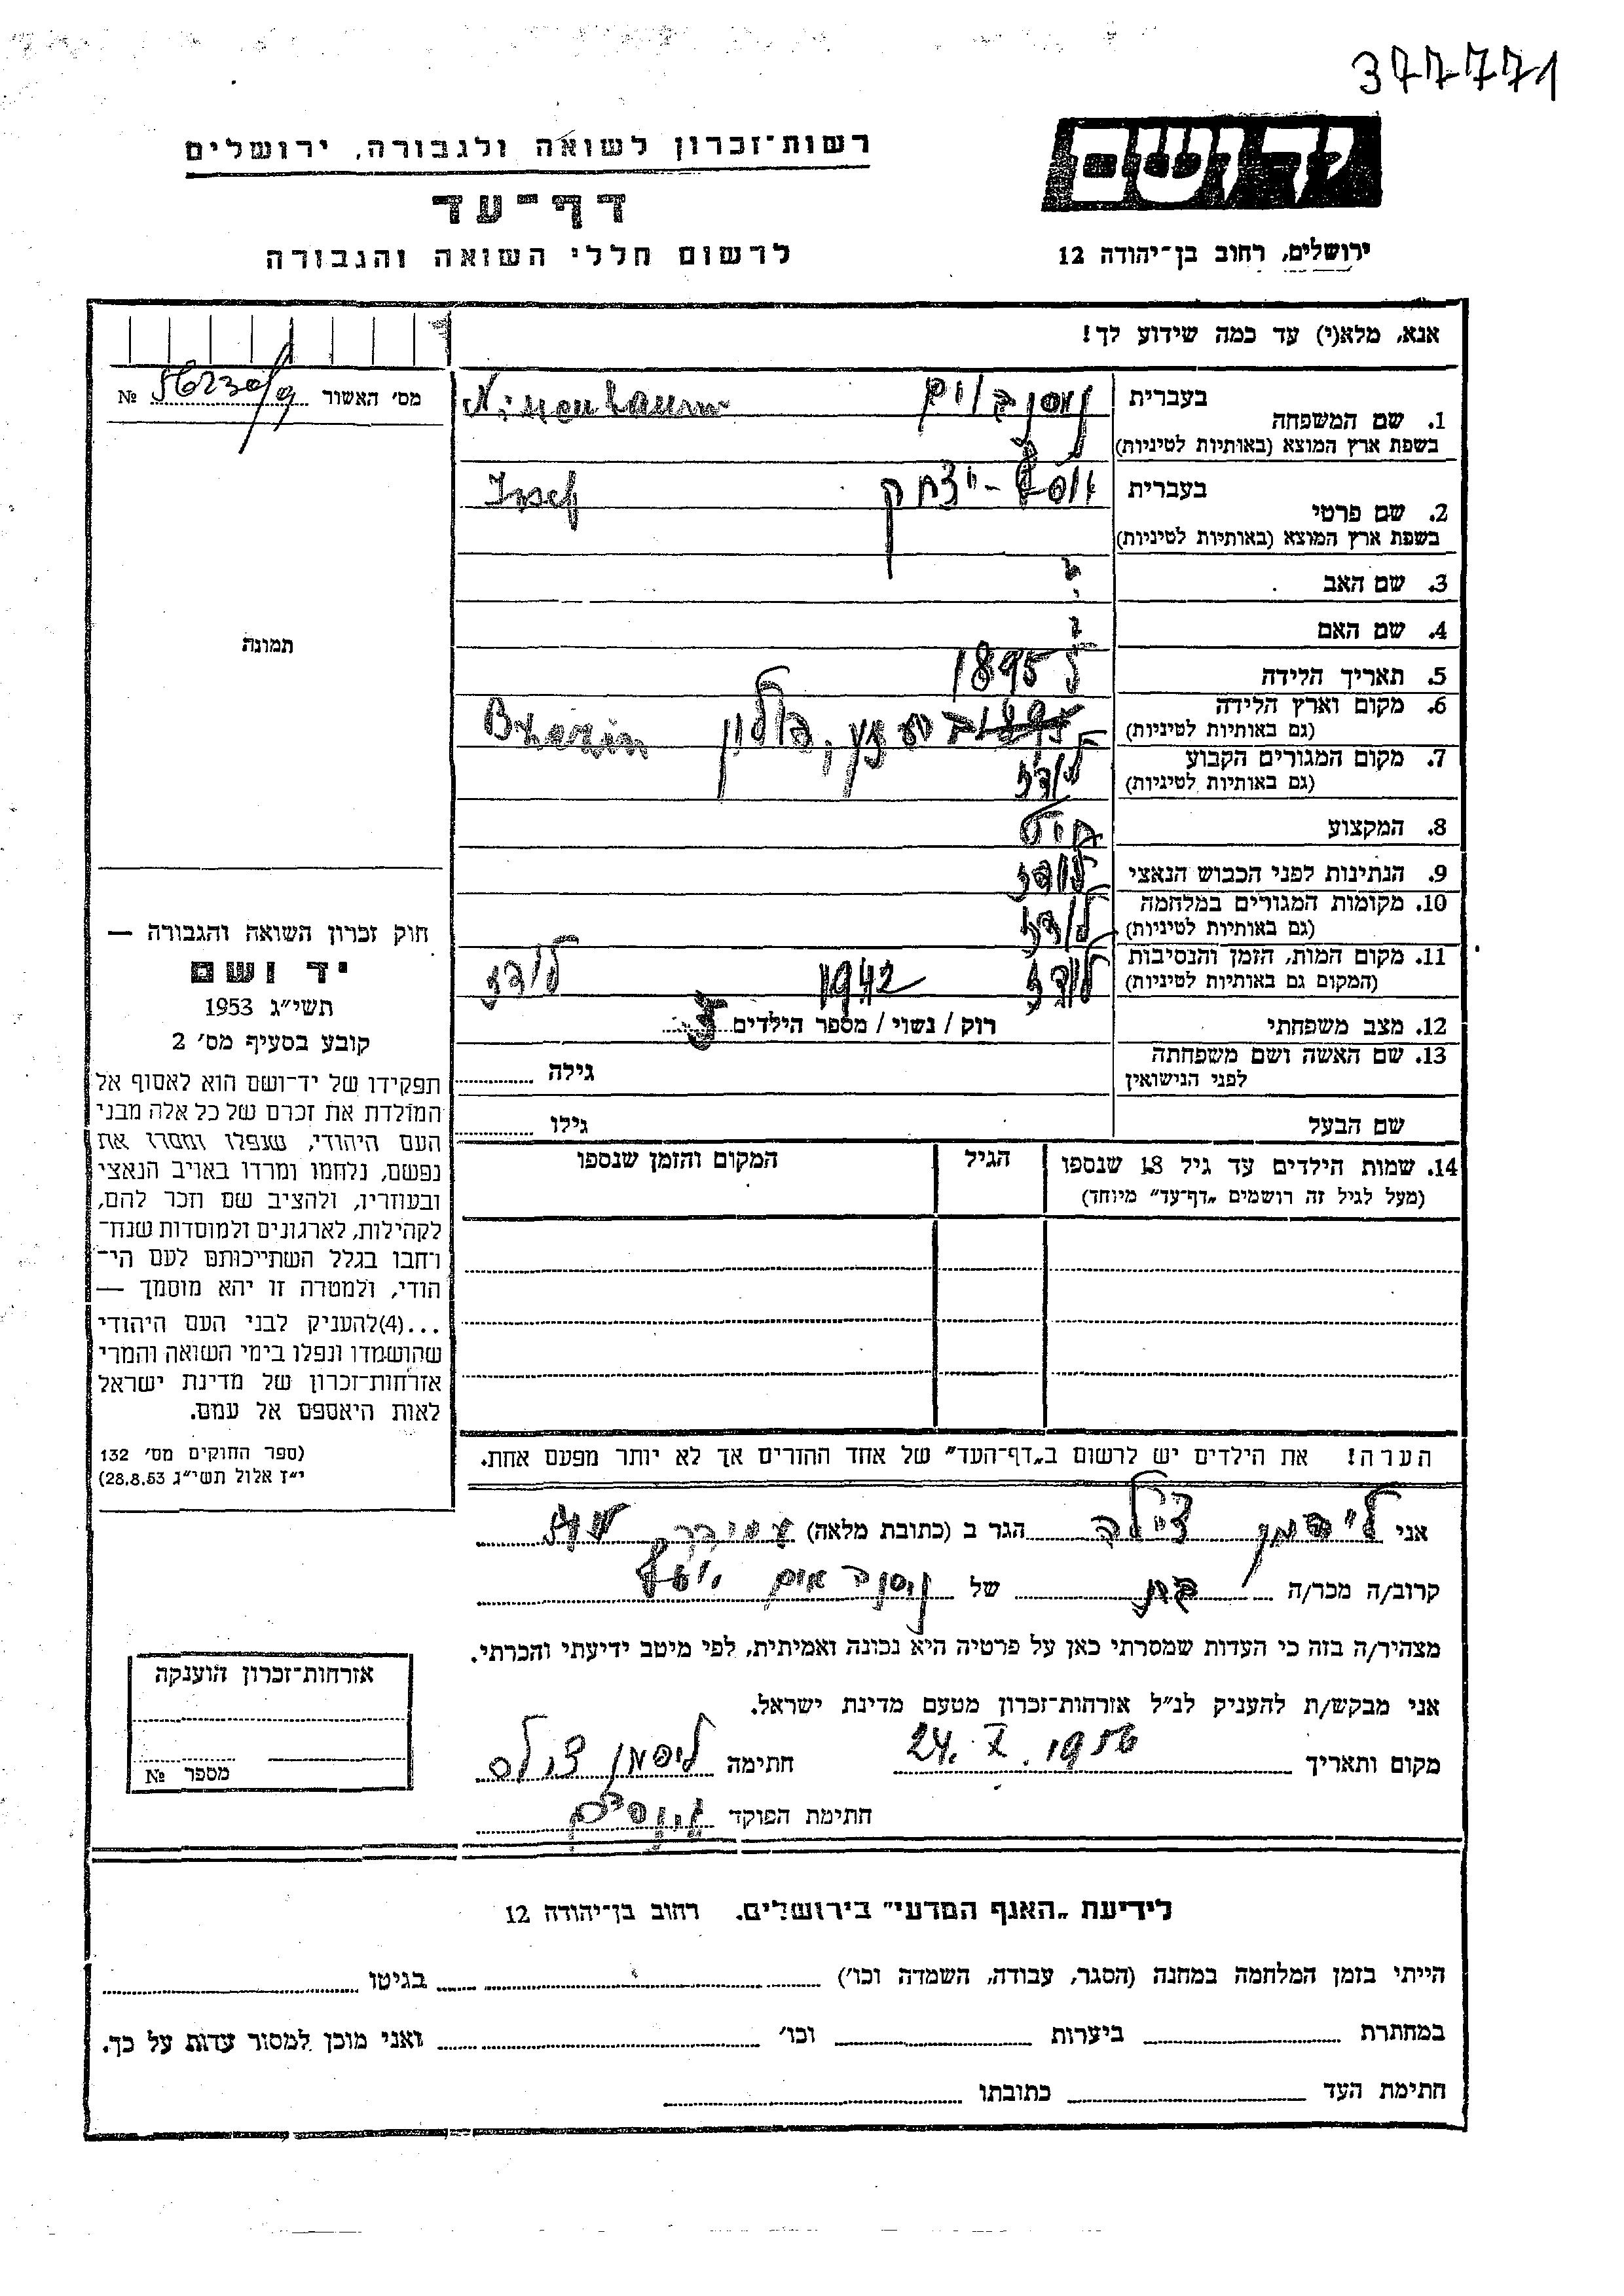 377771
רשות-זכרון לשואה ולגבורה, ירושלים
יד ושם
דף-עד
לרשום חללי השואה והגבורה
ירושלים, רחוב בן-יהודה 12
אנא, מלא(י) עד כמה שידוע לך!
מס' האשור № 56230/
1. שם המשפחה
בעברית ניסנבוים Nissenbaum
בשפת ארץ המוצא (באותיות לטיניות)
2. שם פרטי
בעברית יוסף-יצחק Josef
בשפת ארץ המוצא (באותיות לטיניות)
3. שם האב ?
4. שם האם ?
5. תאריך הלידה 1895
6. מקום וארץ הלידה
(גם באותיות לטיניות) פולין
7. מקום המגורים הקבוע
(גם באותיות לטיניות) לודז
8. המקצוע
9. הנתינות לפני הכבוש הנאצי לודז
10. מקומות המגורים במלחמה
(גם באותיות לטיניות) לודז
11. מקום המות, הזמן והנסיבות
(המקום גם באותיות לטיניות) לודז 1942 לודז
12. מצב משפחתי רוק / נשוי / מספר הילדים
13. שם האשה ושם משפחתה
לפני הנישואין גילה
שם הבעל גילו
14. שמות הילדים עד גיל 18 שנספו הגיל המקום והזמן שנספו
(מעל לגיל זה רושמים „דף-עד" מיוחד)
תמונה
חוק זכרון השואה והגבורה —
יד ושם
תשי"ג 1953
קובע בסעיף מס' 2
תפקידו של יד-ושם הוא לאסוף אל
המולדת את זכרם של כל אלה מבני
העם היהודי, שנפלו ומסרו את
נפשם, נלחמו ומרדו באויב הנאצי
ובעוזריו, ולהציב שם וזכר להם,
לקהילות, לארגונים ולמוסדות שנח-
רבו בגלל השתייכותם לעם הי-
הודי, ולמטרה זו יהא מוסמך —
...(4)להעניק לבני העם היהודי
שהושמדו ונפלו בימי השואה והמרי
אזרחות-זכרון של מדינת ישראל
לאות היאספם אל עמם.
(ספר החוקים מס' 132
י"ז אלול תשי"ג 28.8.53)
הערה! את הילדים יש לרשום ב„דף-העד" של אחד ההורים אך לא יותר מפעם אחת.
אני ליפמן צילה הגר ב (כתובת מלאה)
קרוב/ה מכר/ה בת של ניסנבאום יוסף
מצהיר/ה בזה כי העדות שמסרתי כאן על פרטיה היא נכונה ואמיתית, לפי מיטב ידיעתי והכרתי.
אני מבקש/ת להעניק לנ"ל אזרחות-זכרון מטעם מדינת ישראל.
מקום ותאריך 24. X. 1956 חתימה ליפמן צילה
חתימת הפוקד
אזרחות-זכרון הוענקה
מספר №
לידיעת „האגף המדעי" בירושלים. רחוב בן-יהודה 12
הייתי בזמן המלחמה במחנה (הסגר, עבודה, השמדה וכו') בגיטו
במחתרת ביערות וכו' ואני מוכן למסור עדות על כך.
חתימת העד כתובתו